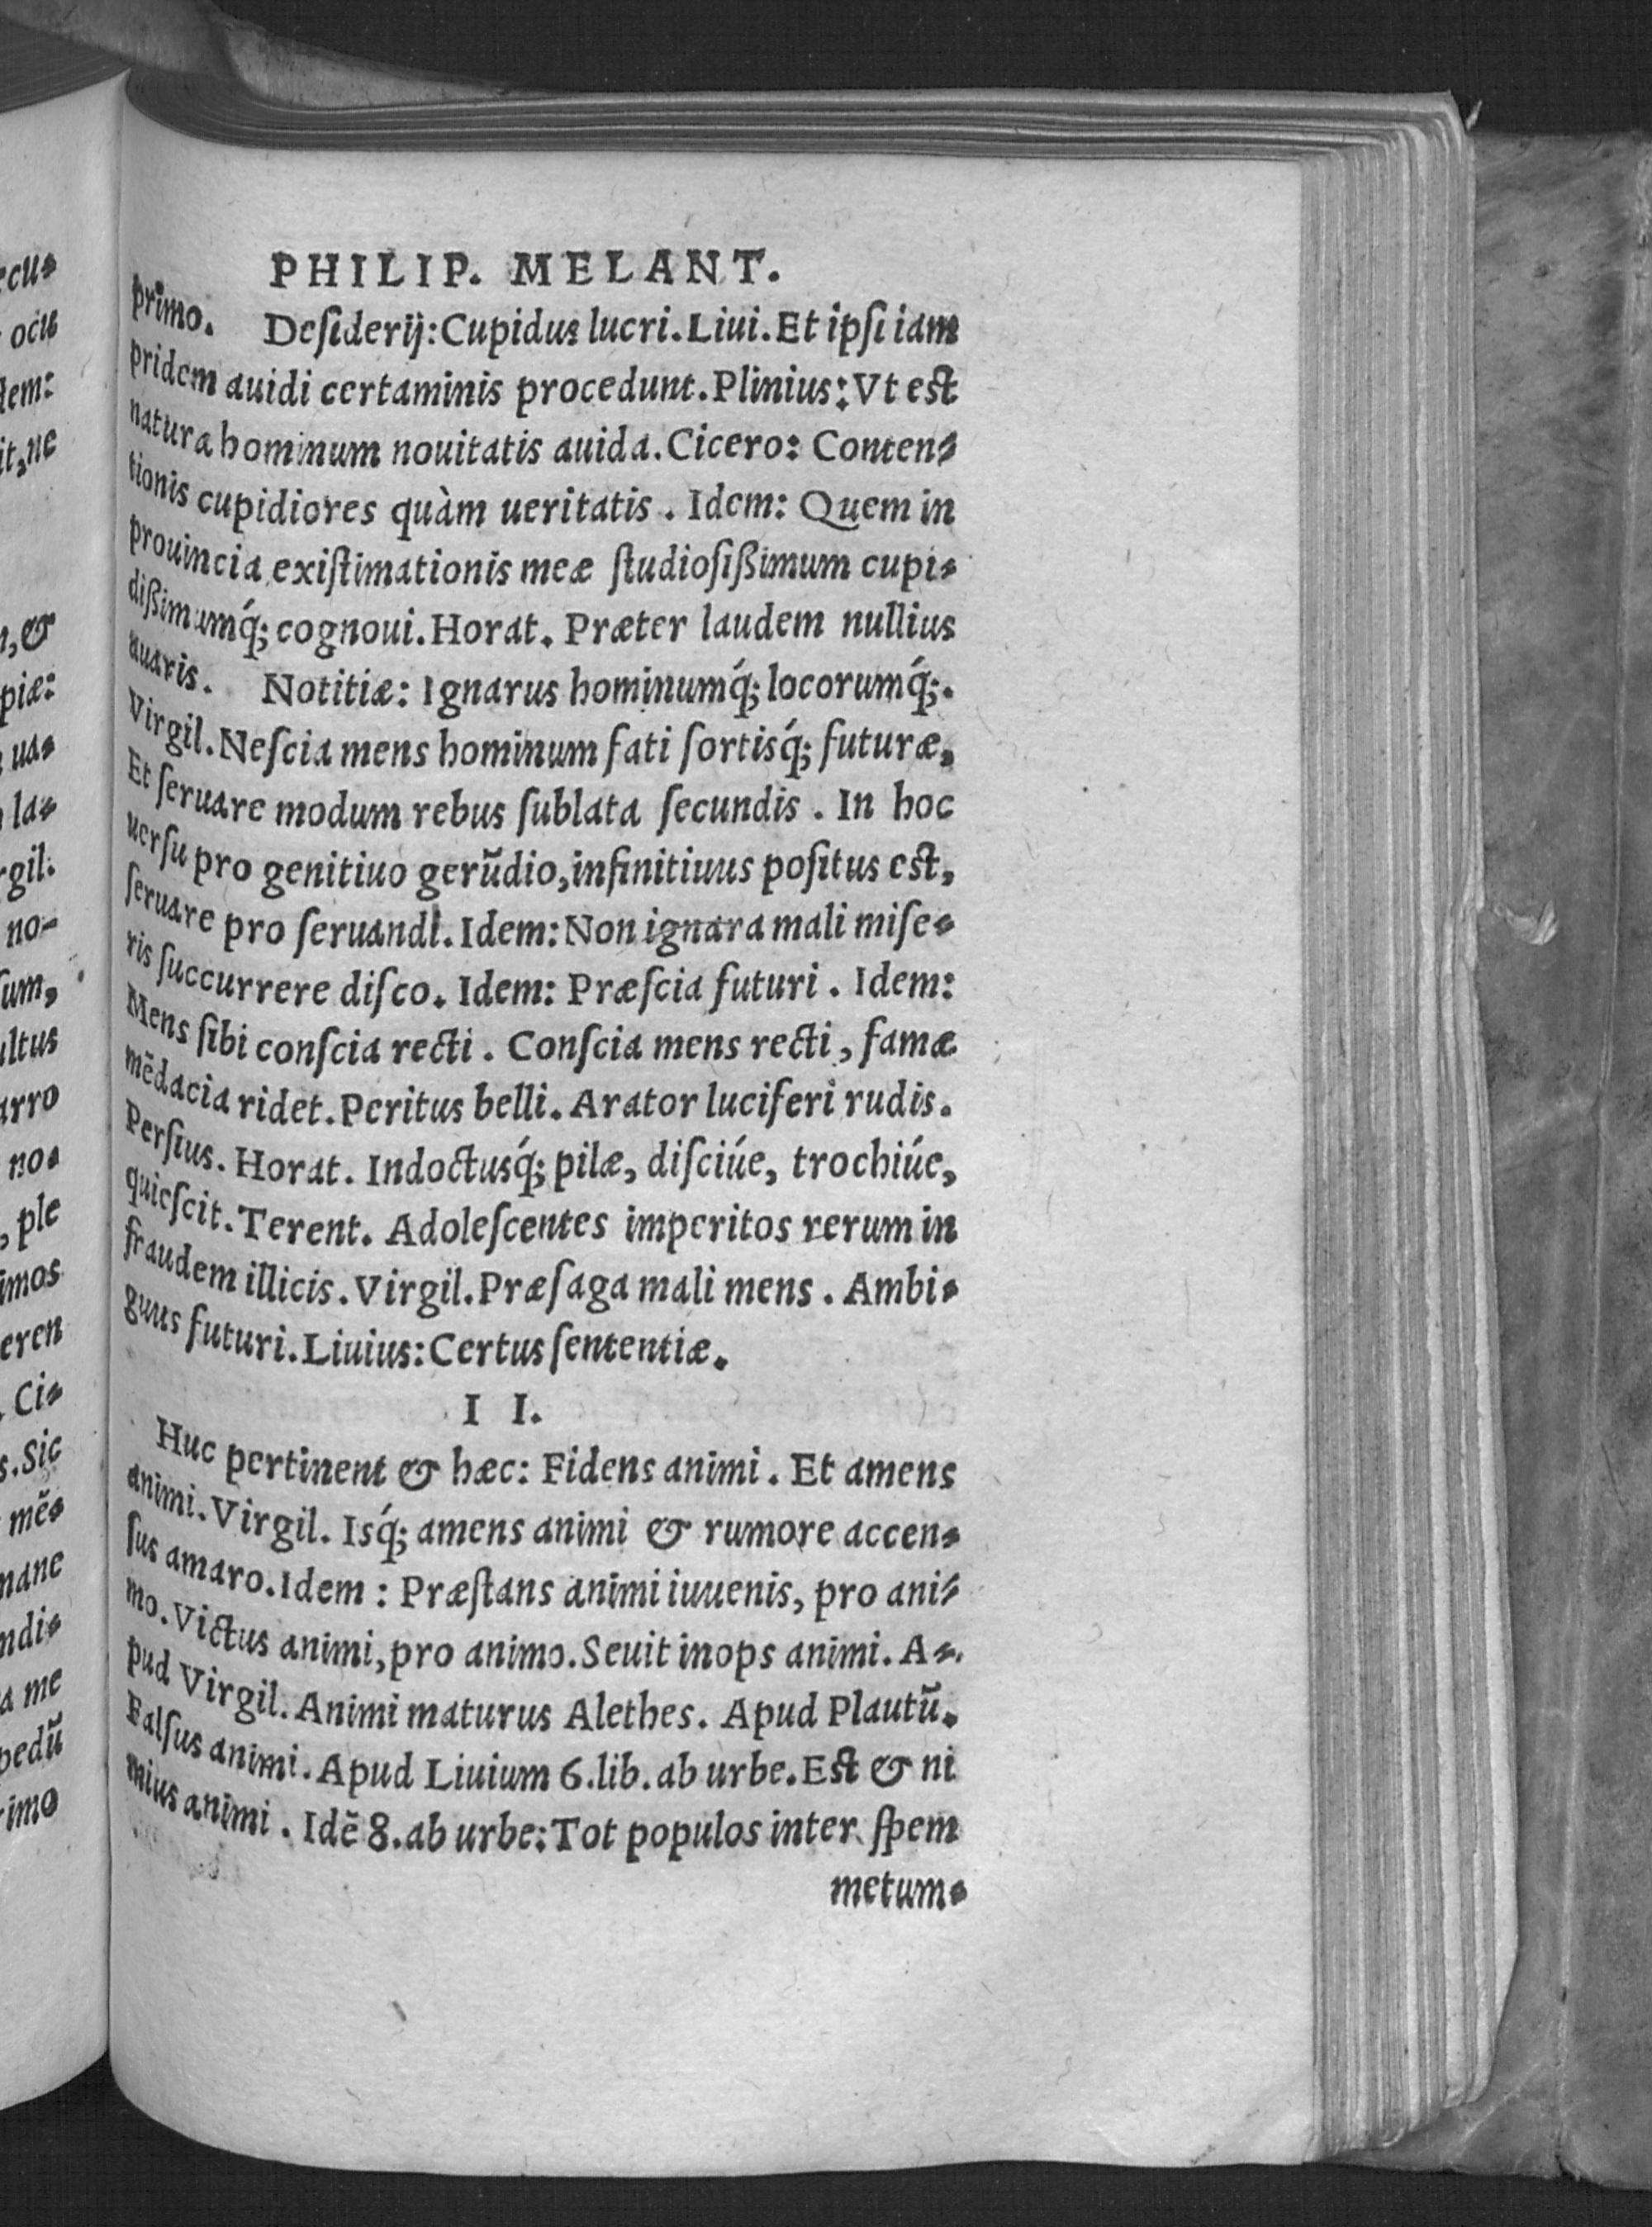 PHILIP. MELANT.
primo. Deſiderij: Cupidus lucri. Liui. Et ipſi iam
pridem auidi certaminis procedunt. Plinius: Vt est
natura hominum nouitatis auida. Cicero: Conten-
tionis cupidiores quàm ueritatis. Idem: Quem in
prouincia exiſtimationis meæ ſtudioſißimum cupi-
dißimumq́; cognoui. Horat. Præter laudem nullius
auaris. Notitiæ: Ignarus hominumq́; locorumq́;.
Virgil. Neſcia mens hominum fati ſortisq́; futuræ,
Et ſeruare modum rebus ſublata ſecundis. In hoc
uerſu pro genitiuo gerũdio, infinitiuus poſitus est,
ſeruare pro ſeruandi. Idem: Non ignara mali miſe-
ris ſuccurrere diſco. Idem: Præſcia futuri. Idem:
Mens ſibi conſcia recti. Conſcia mens recti, famæ
mẽdacia ridet. Peritus belli. Arator luciferi rudis.
Perſius. Horat. Indoctusq́; pilæ, diſciúe, trochiúe,
quieſcit. Terent. Adoleſcentes imperitos rerum in
fraudem illicis. Virgil. Præſaga mali mens. Ambi-
guus futuri. Liuius: Certus ſententiæ.
I I.
Huc pertinent & hæc: Fidens animi. Et amens
animi. Virgil. Isq́; amens animi & rumore accen-
ſus amaro. Idem: Præſtans animi iuuenis, pro ani-
mo. Victus animi, pro animo. Seuit inops animi. A-
pud Virgil. Animi maturus Alethes. Apud Plautũ.
Falſus animi. Apud Liuium 6. lib. ab urbe. Est & ni
mius animi. Idẽ 8. ab urbe: Tot populos inter ſpem
metum-
ecu-
ocu
dem:
it, ne
n, &
piæ:
ua-
la-
rgil.
no-
ſum,
ultus
arro
no-
, ple
imos
eren
. Ci-
s. Sic
mẽ-
mane
ndi-
a me
pedũ
rimo